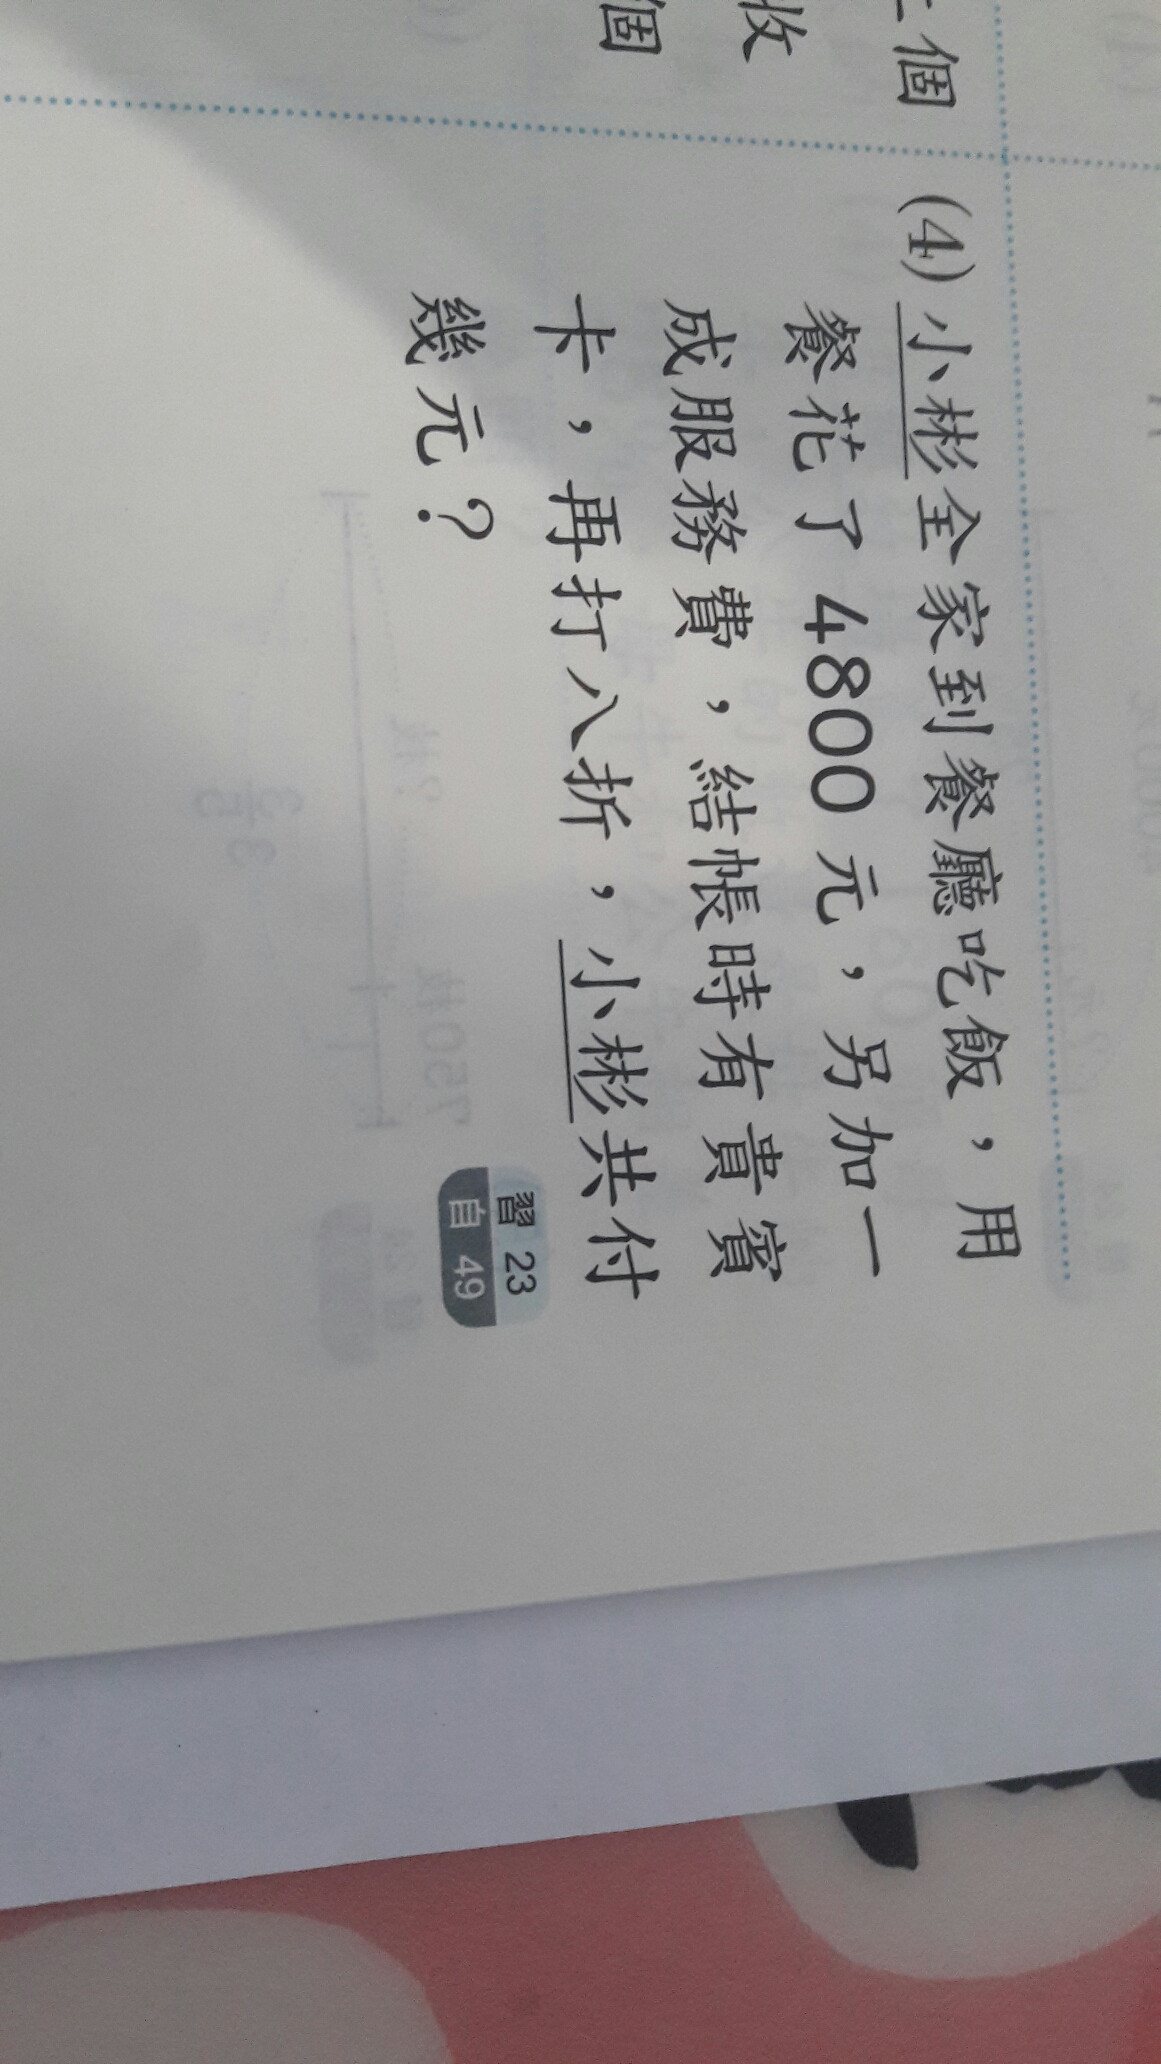 個
收
個
(4) 小彬全家到餐廳吃飯，用
餐花了 4800 元，另加一
成服務費，結帳時有貴賓
卡，再打八折，小彬共付
幾元？
習 23
自 49